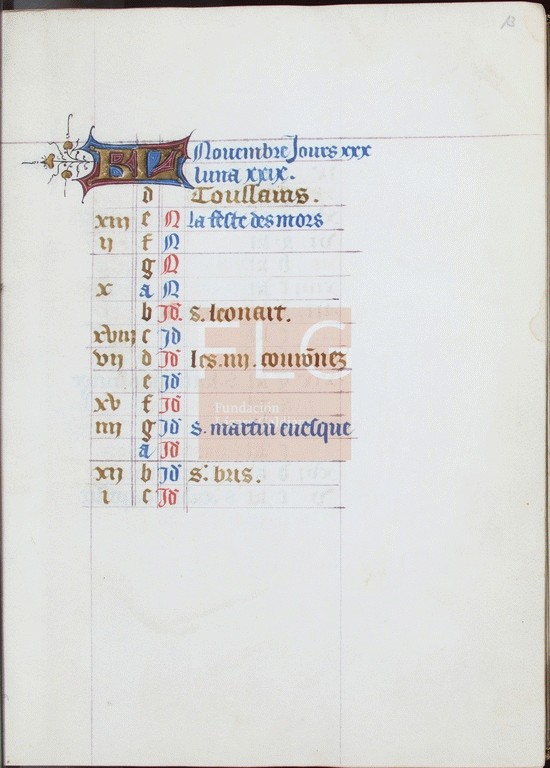 13
KL Nouembre Jours xxx
luna xxix.
d Toussains.
xiii e N la feste des mors
ii f N
g N
x a N
b Id. s. leonart.
xviii c Id
vii d Id les. iiii. courōnez
e Id
xv f Id
iiii g Id s. martin euesque
a Id
xii b Id s. bris.
i c Id
FLG
Fundación